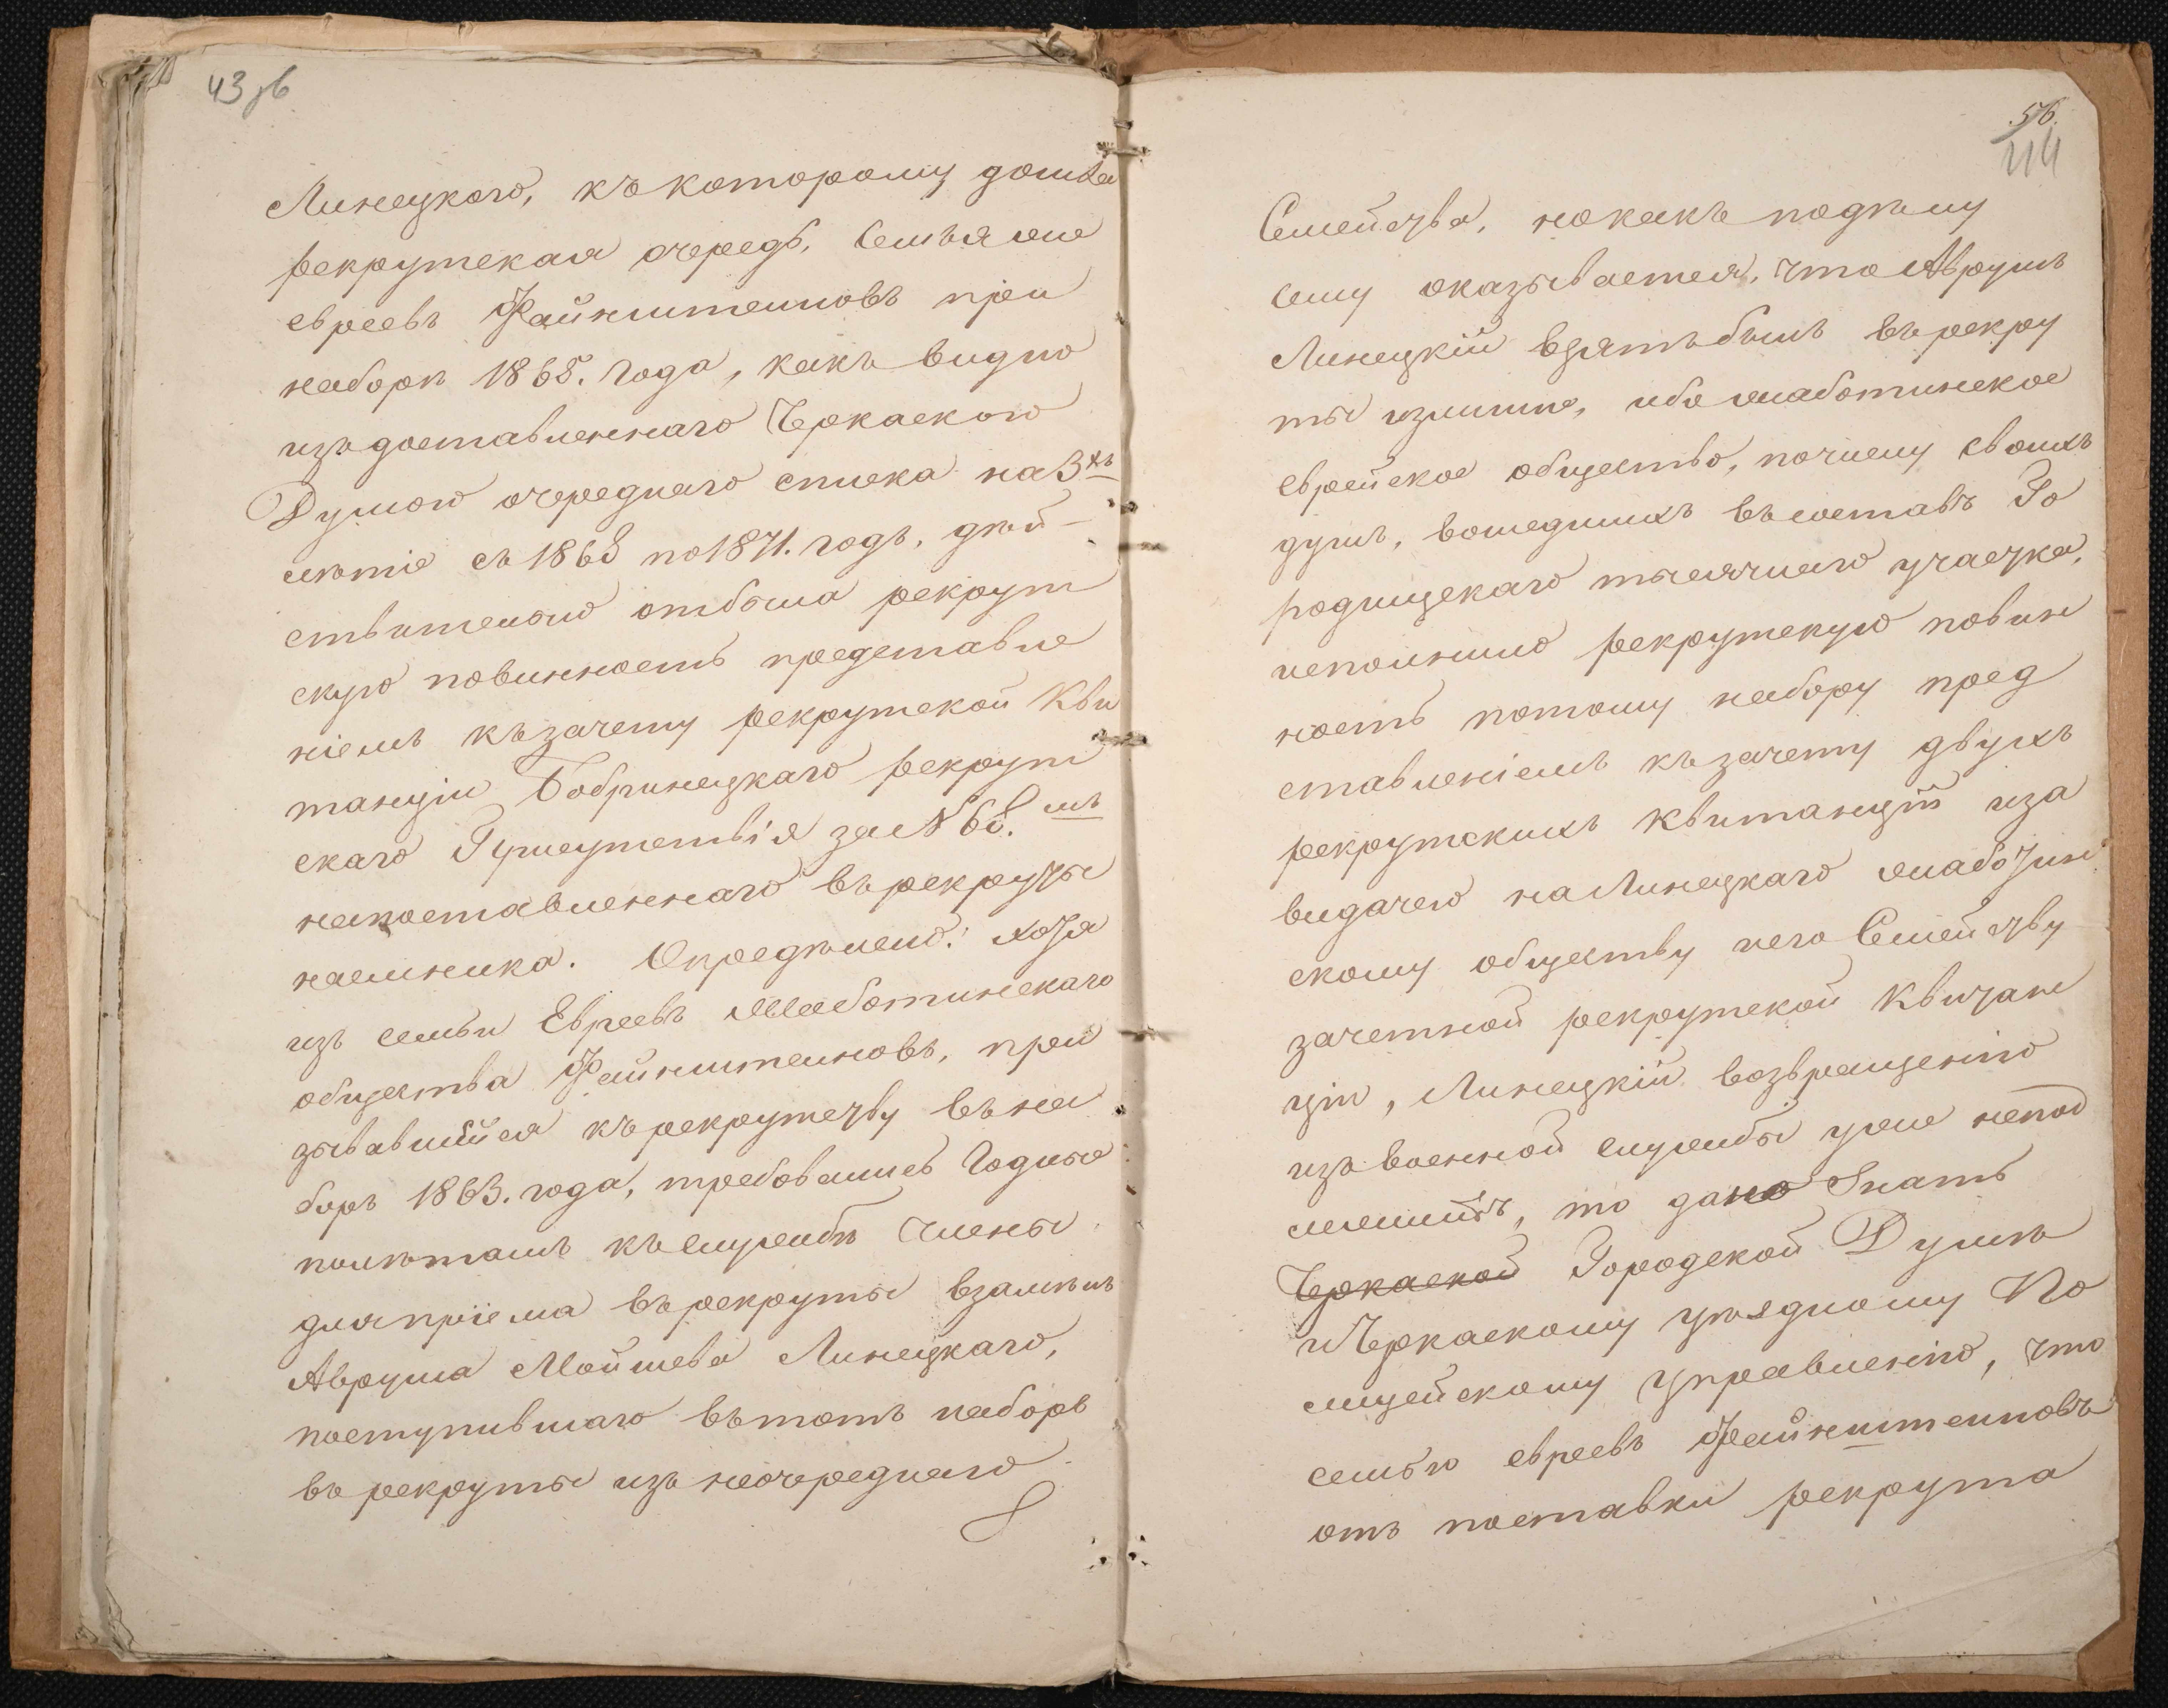 43 зв
Линецкого, къ которому дошла
рекрутская очередь, семья же
евреевъ Файнштейновъ при
наборѣ 1865. года, какъ видно
изъ доставленнаго Черкаской
Думою очереднаго списка на 3хъ
лѣтіе съ 1868 по 1871. годъ, дѣй-
ствительно отбыла рекрут
скую повинность представле
ніемъ къ зачету рекрутской Кви
танціи Бобринецкаго рекрут
скаго Присутствія за № 68.мъ
на поставленнаго въ рекруты
наемника. Опредѣлено: хотя
изъ семьи Евреевъ Жаботинскаго
общества Файнштейновъ, при
зывавшійся къ рекрутству въ на
боръ 1863. года, требовались годные
по лѣтамъ къ службѣ члены
для пріема въ рекруты взамѣнъ
Аврума Мойшева Линецкаго,
поступившаго въ тотъ наборъ
въ рекруты изъ неочереднаго
56.
44
Семейства, но какъ по дѣлу
сему оказывается, что Аврумъ
Линецкій взятъ былъ въ рекру
ты излишне, ибо Жаботинское
еврейское общество, по числу своихъ
душъ, вошедшихъ въ составъ Го
родищскаго тысячнаго участка,
исполнило рекрутскую повин
ность по тому набору пред
ставленіемъ къ зачету двухъ
рекрутскихъ квитанцій и за
видачею на Линецкаго Жаботин
скому обществу и его Семейству
зачетной рекрутской Квитан
ціи, Линецкій возвращенію
изъ военной службы уже непод
лежитъ, то дано знать
Черкаской Городской Думѣ
и Черкаскому уѣздному По
лицейскому Управленію, что
семью евреевъ Файнштейновъ
отъ поставки рекрута